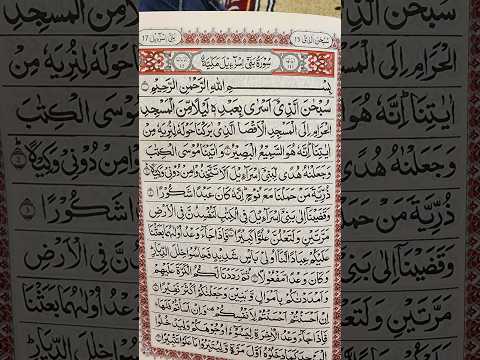 سُبْحٰنَ الَّذِیْ ١٥ بَنِیْۤ اِسْرَآءِیْلَ ١٧
سُوْرَةُ بَنِیْۤ اِسْرَآءِیْلَ مَكِّیَّةٌ
بِسْمِ اللهِ الرَّحْمٰنِ الرَّحِیْمِ
سُبْحٰنَ الَّذِیْۤ اَسْرٰی بِعَبْدِهٖ لَیْلًا مِّنَ الْمَسْجِدِ
الْحَرَامِ اِلَی الْمَسْجِدِ الْاَقْصَا الَّذِیْ بٰرَكْنَا حَوْلَهٗ لِنُرِیَهٗ مِنْ
اٰیٰتِنَا اِنَّهٗ هُوَ السَّمِیْعُ الْبَصِیْرُ وَ اٰتَیْنَا مُوْسَی الْكِتٰبَ
وَ جَعَلْنٰهُ هُدًی لِّبَنِیْۤ اِسْرَآءِیْلَ اَلَّا تَتَّخِذُوْا مِنْ دُوْنِیْ وَكِیْلًا
ذُرِّیَّةَ مَنْ حَمَلْنَا مَعَ نُوْحٍ اِنَّهٗ كَانَ عَبْدًا شَكُوْرًا
وَ قَضَیْنَاۤ اِلٰی بَنِیْۤ اِسْرَآءِیْلَ فِی الْكِتٰبِ لَتُفْسِدُنَّ فِی الْاَرْضِ
مَرَّتَیْنِ وَ لَتَعْلُنَّ عُلُوًّا كَبِیْرًا فَاِذَا جَآءَ وَعْدُ اُوْلٰىهُمَا بَعَثْنَا
عَلَیْكُمْ عِبَادًا لَّنَاۤ اُولِیْ بَاْسٍ شَدِیْدٍ فَجَاسُوْا خِلٰلَ الدِّیَارِ
وَ كَانَ وَعْدًا مَّفْعُوْلًا ثُمَّ رَدَدْنَا لَكُمُ الْكَرَّةَ عَلَیْهِمْ
وَ اَمْدَدْنٰكُمْ بِاَمْوَالٍ وَّ بَنِیْنَ وَ جَعَلْنٰكُمْ اَكْثَرَ نَفِیْرًا
اِنْ اَحْسَنْتُمْ اَحْسَنْتُمْ لِاَنْفُسِكُمْ وَ اِنْ اَسَاْتُمْ فَلَهَا
فَاِذَا جَآءَ وَعْدُ الْاٰخِرَةِ لِیَسُوْٓءٗا وُجُوْهَكُمْ وَ لِیَدْخُلُوا
الْمَسْجِدَ كَمَا دَخَلُوْهُ اَوَّلَ مَرَّةٍ وَّ لِیُتَبِّرُوْا مَا عَلَوْا تَتْبِیْرًا